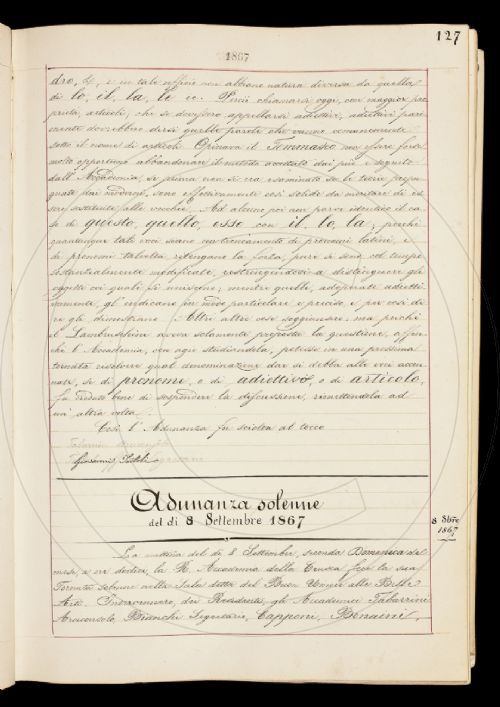 127
1867
dro, &, e in tale ufficio non abbiano natura diversa da quella
di lo, il, la, le ec. Perciò chiamarsi oggi, con maggior pro
prietà, articoli, che se dovessero appellarsi adiettivi, adiettivi pari
mente dovrebbero dirsi quelle parole che vanno comunemente
sotto il nome di articoli. Opinava il Tommaseo non essere forse
molto opportuno abbandonare il metodo accettato dai più e seguito
dall'Accademia, se prima non si era esaminato se le teorie propu
gnate dai moderni, sono effettivamente così solide da meritare di es
sere sostituite alle vecchie. Ad alcuno poi non parve identico il ca
so di questo, quello, esso con il, lo, la; perché
quantunque tali voci siano un troncamento di pronomi latini, e
de' pronomi talvolta ritengano la forza, pure si sono col tempo
sostanzialmente modificate, restringendosi a distinguere gli
oggetti coi quali si uniscono; mentre quelle, adoperate adietti
vamente, gl'indicano in modo particolare e preciso, e per così di
re gli dimostrano. Altri altre cose soggiunsero: ma perché
il Lambruschini aveva solamente proposta la questione, affin
ché l'Accademia, con agio studiandola, potesse in una prossima
tornata risolvere qual denominazione dar si debba alle voci accen
nate, se di pronome, o di adiettivo, o di articolo,
fu creduto bene di sospendere la discussione, rimettendola ad
un'altra volta.
Così l'Adunanza fu sciolta al tocco
Giovanni Tortoli
Adunanza solenne
del dì 8 Settembre 1867
8 Stbre
1867
La mattina del dì 8 Settembre, seconda Domenica del
mese, a ore dodici, la R. Accademia della Crusca fece la sua
Tornata solenne nella Sala detta del Buon Umore alle Belle
Arti. Intervennero, dei Residenti, gli Accademici Tabarrini
Arciconsolo, Bianchi Segretario, Capponi, Bonaini,